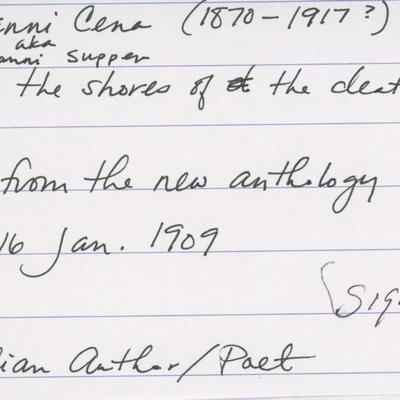 nni Cena (1870-1917?)
aka
anni Supper
the shores of the deat
from the new anthology
16 Jan. 1909
(Sig
ian Author/Poet